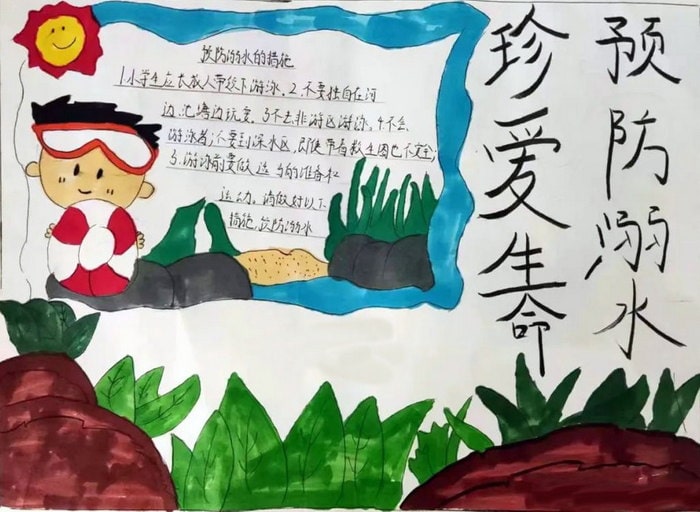 预防溺水
珍爱生命
预防溺水的措施
1.小学生应在成人带领下游泳。2.不要独自在河
边、池塘边玩耍。3.不去非游区游泳。4.不会
游泳者,不要到深水区,即使带着救生圈也不安全;
5.游泳前要做适当的准备和
运动。请做好以下
措施,预防溺水